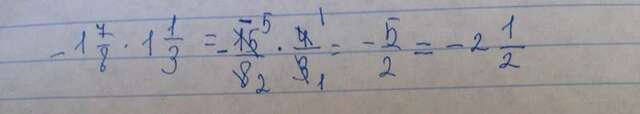 -1 7/8 · 1 1/3 = -15/8 · 4/3 = -5/2 = -2 1/2